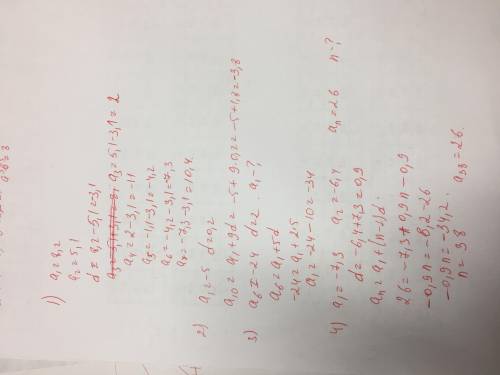 1) a₁=8,2
a₂=5,1
d=8,2-5,1=3,1
a₃=5,1-3,1=2
a₄=2-3,1=-1,1
a₅=-1,1-3,1=-4,2
a₆=-4,2-3,1=-7,3
a₇=-7,3-3,1=10,4.
2) a₁=-5 d=0,2
a₁₀=a₁+9d=-5+9·0,2=-5+1,8=-3,8
3) a₆=-24 d=2. a₁-?
a₆=a₁+5d
-24=a₁+2·5
a₁=-24-10=-34
4) a₁=-7,3 a₂=-6,4 aₙ=26 n-?
d=-6,4+7,3=0,9
aₙ=a₁+(n-1)d.
26=-7,3+0,9n-0,9
-0,9n=-8,2-26
-0,9n=-34,2.
n=38 a₃₈=26.